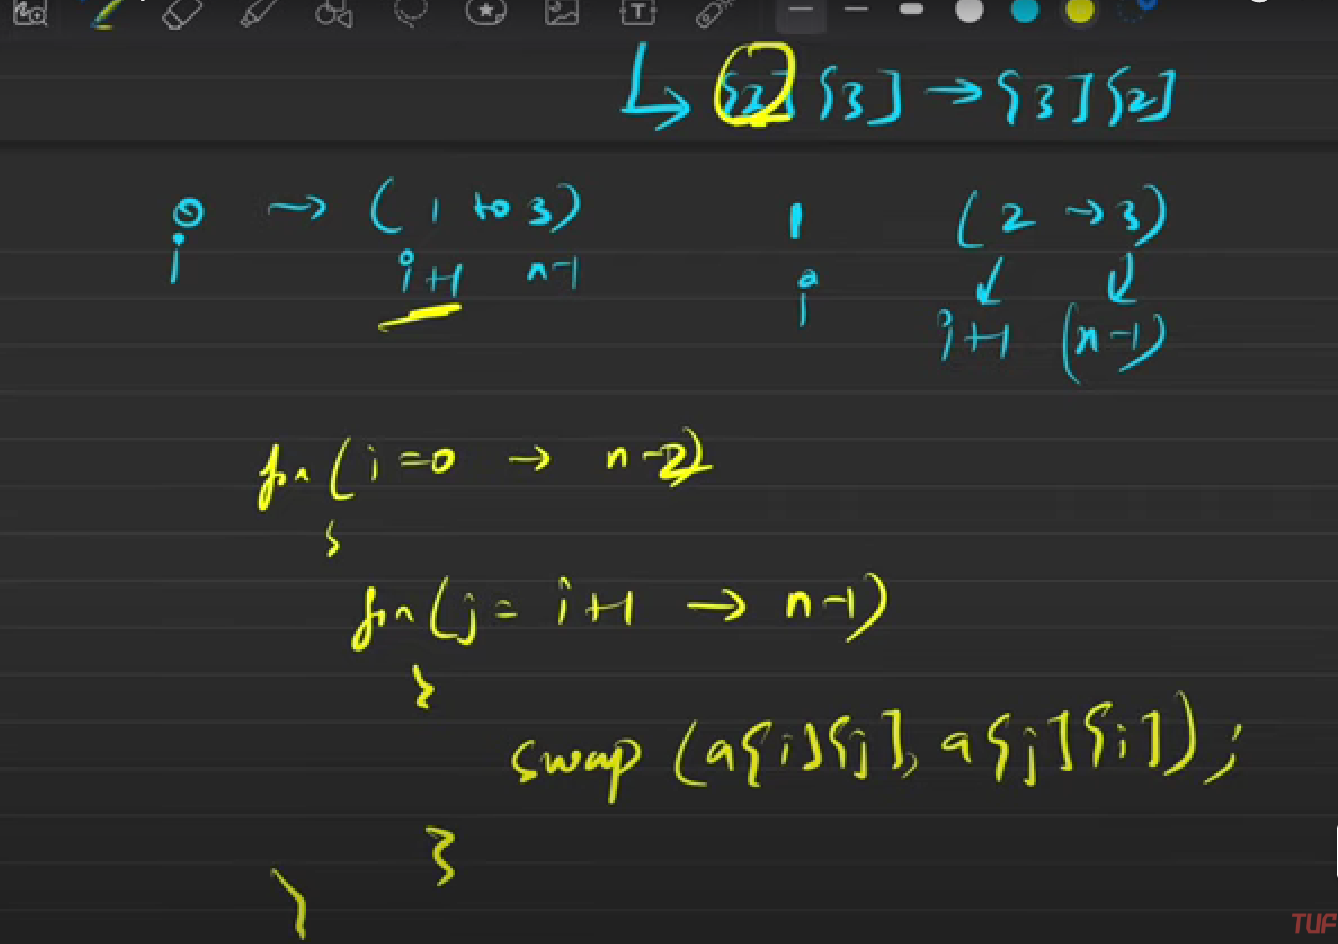 [2] [3] → [3] [2]
0 → (1 to 3) 1 (2 → 3)
i i+1 n-1 i i+1 (n-1)
for (i=0 → n-2)
{
for (j = i+1 → n-1)
{
swap (a[i][j], a[j][i]);
}
}
TUF